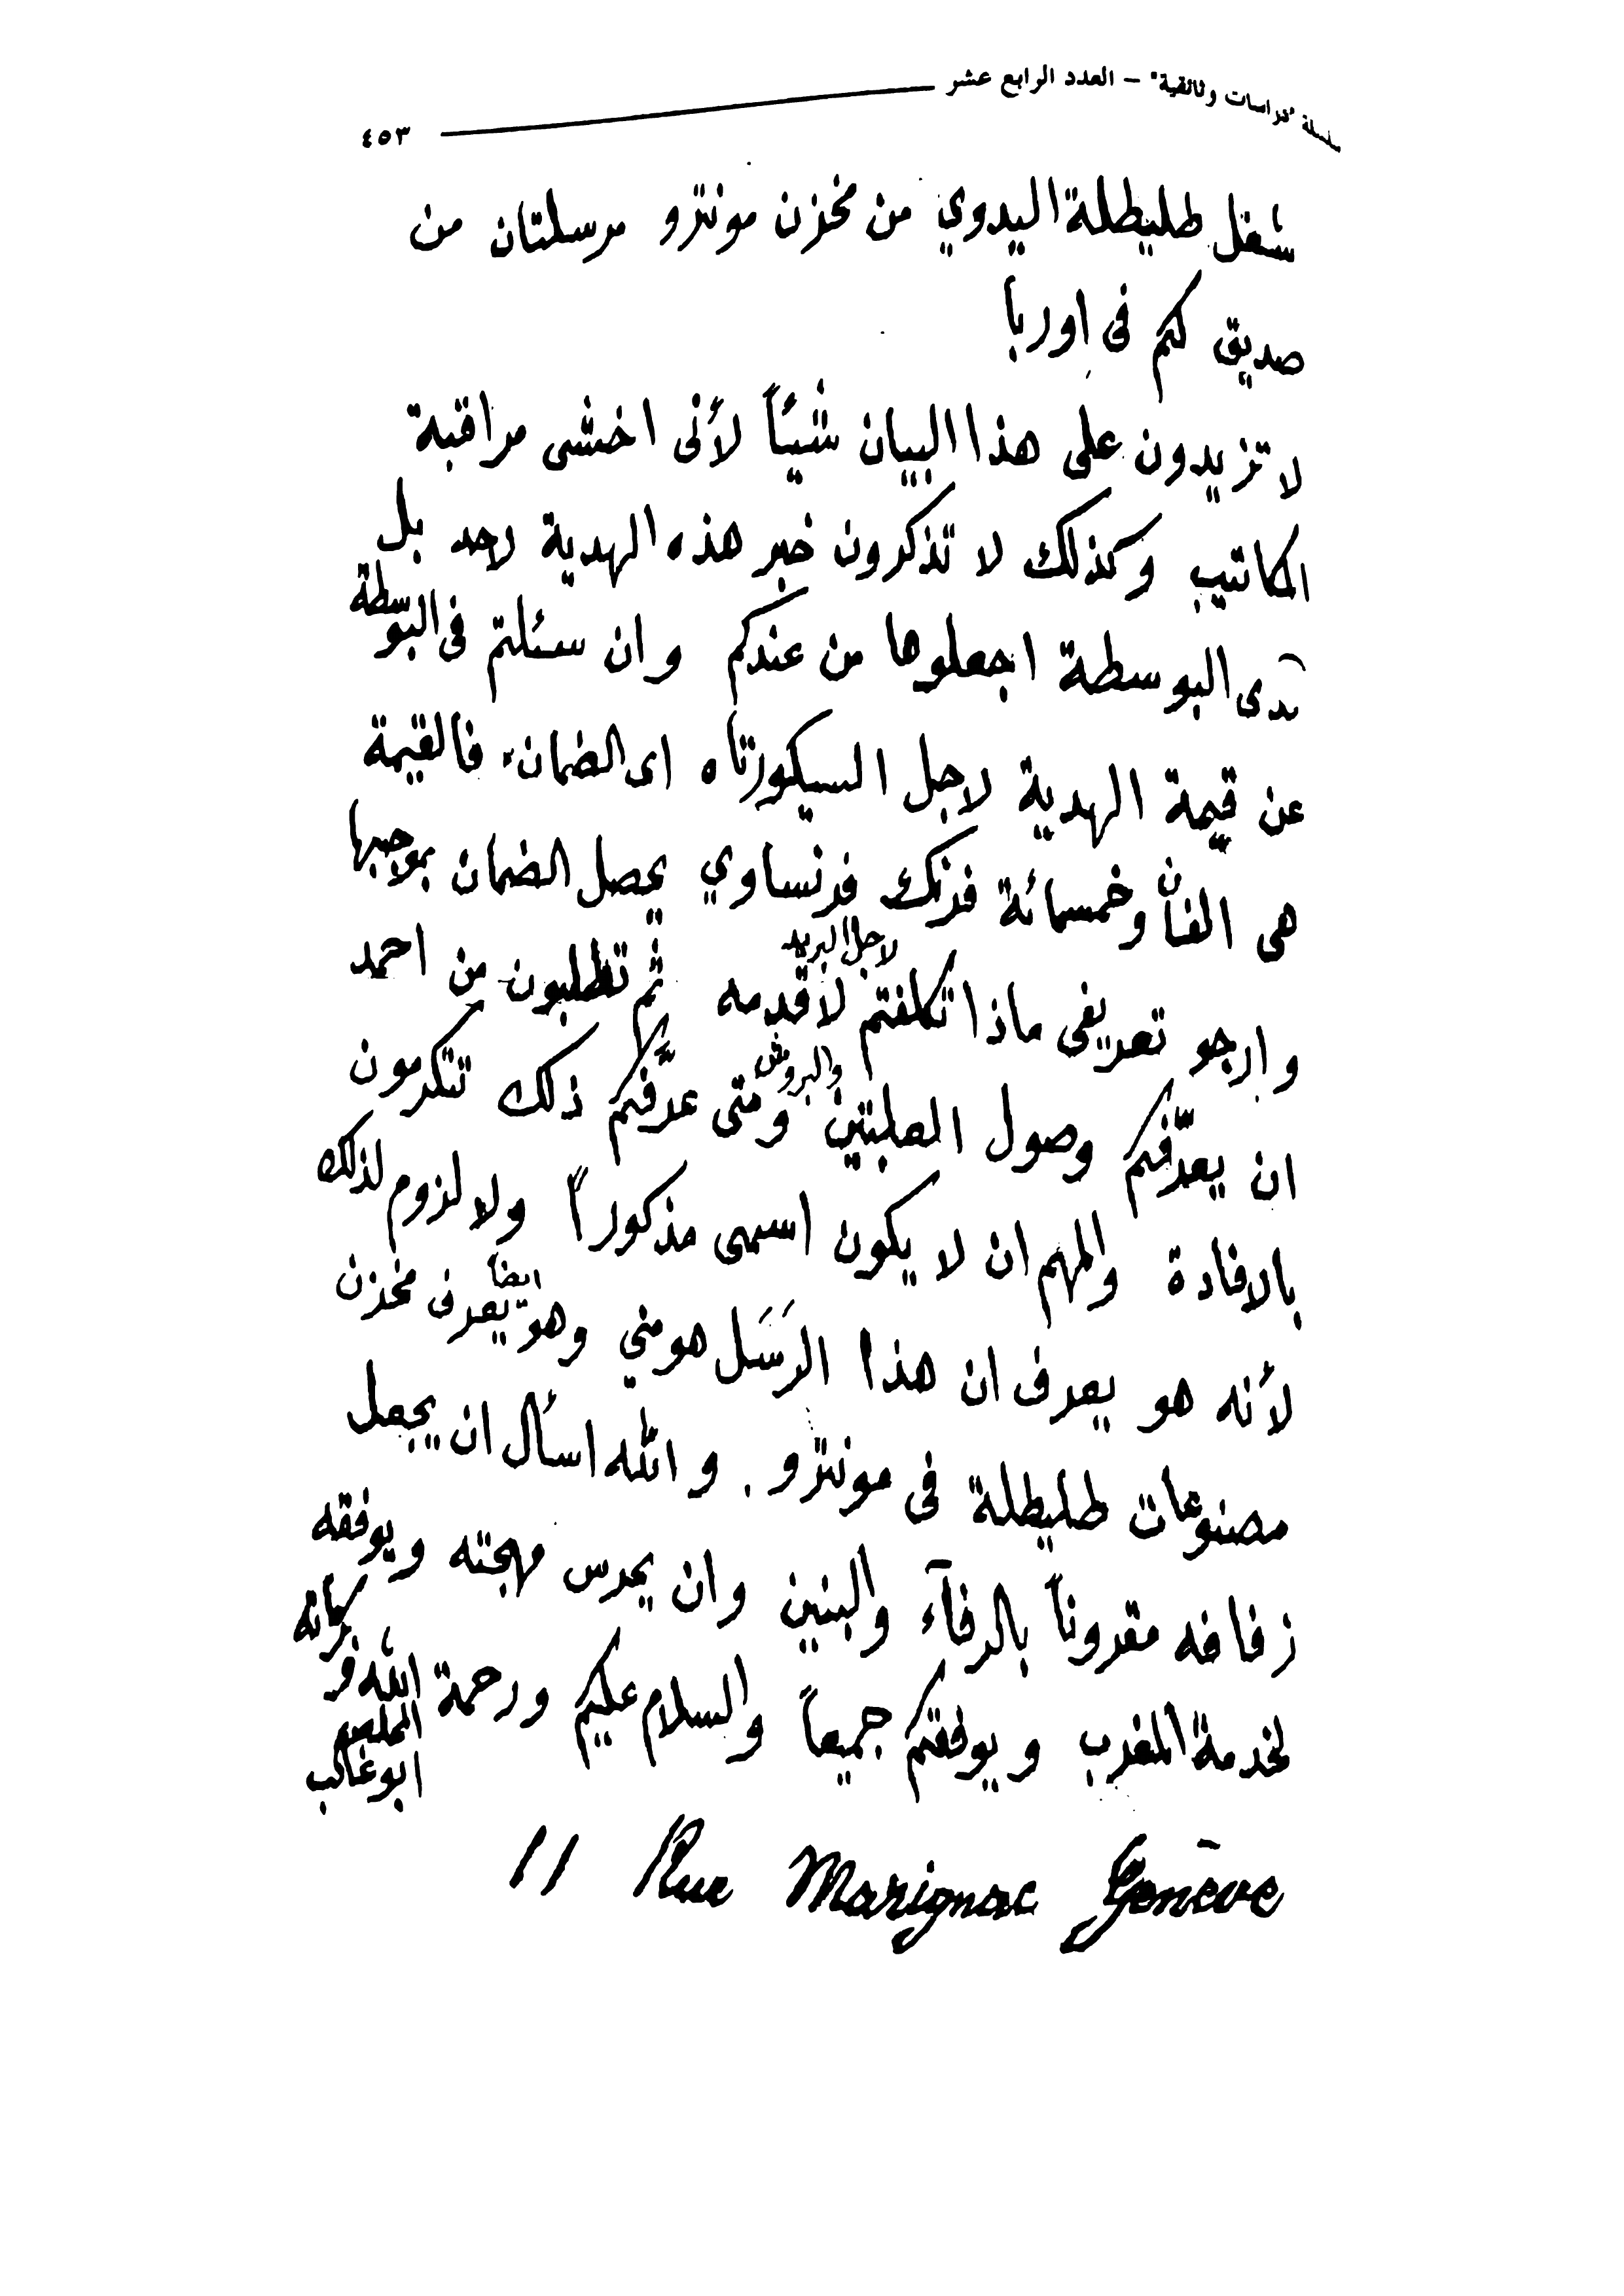 سلسلة "دراسات وثائقية" – العدد الرابع عشر
٤٥٣
شغل طليطلة اليدوي من مخزن مونترو مرسلتان من
صديق لكم فى اوربا
لا تزيدون على هذا البيان شيئاً لأنى اخشى مراقبة
المكاتيب وكذلك لا تذكرون خبر هذه الهدية لاحد بل
لدى البوسطة اجعلوها من عندكم وان سئلتم فى البوسطة
عن قيمة الهدية لاجل السيكورتاه اى الضمان، فالقيمة
هى الفان وخمسمائة فرنك فرنساوي يحصل الضمان بموجبها
وارجو تعريفى ماذا تكلفتم لاجل البريد لأقدمه ثم تطلبون من احمد
ان يعرّفكم وصول العلبتين والبروش ومتى عرَّفكم ذلك تتكرمون
بالافادة والمهم ان لا يكون اسمى مذكوراً ولا لزوم لذلك
لأنه هو يعرف ان هذا الرَسَل هو مني وهو ايضاً يعرف مخزن
مصنوعات طليطلة فى مونترو. والله اسأل ان يجعل
زفافه مقروناً بالرفآء والبنين وان يحرس مهجته ويوفقه
لخدمة المغرب ويوفقكم جميعاً والسلام عليكم ورحمة الله وبركاته
المخلص
ابو غالب
11 Rue Marignac Genève